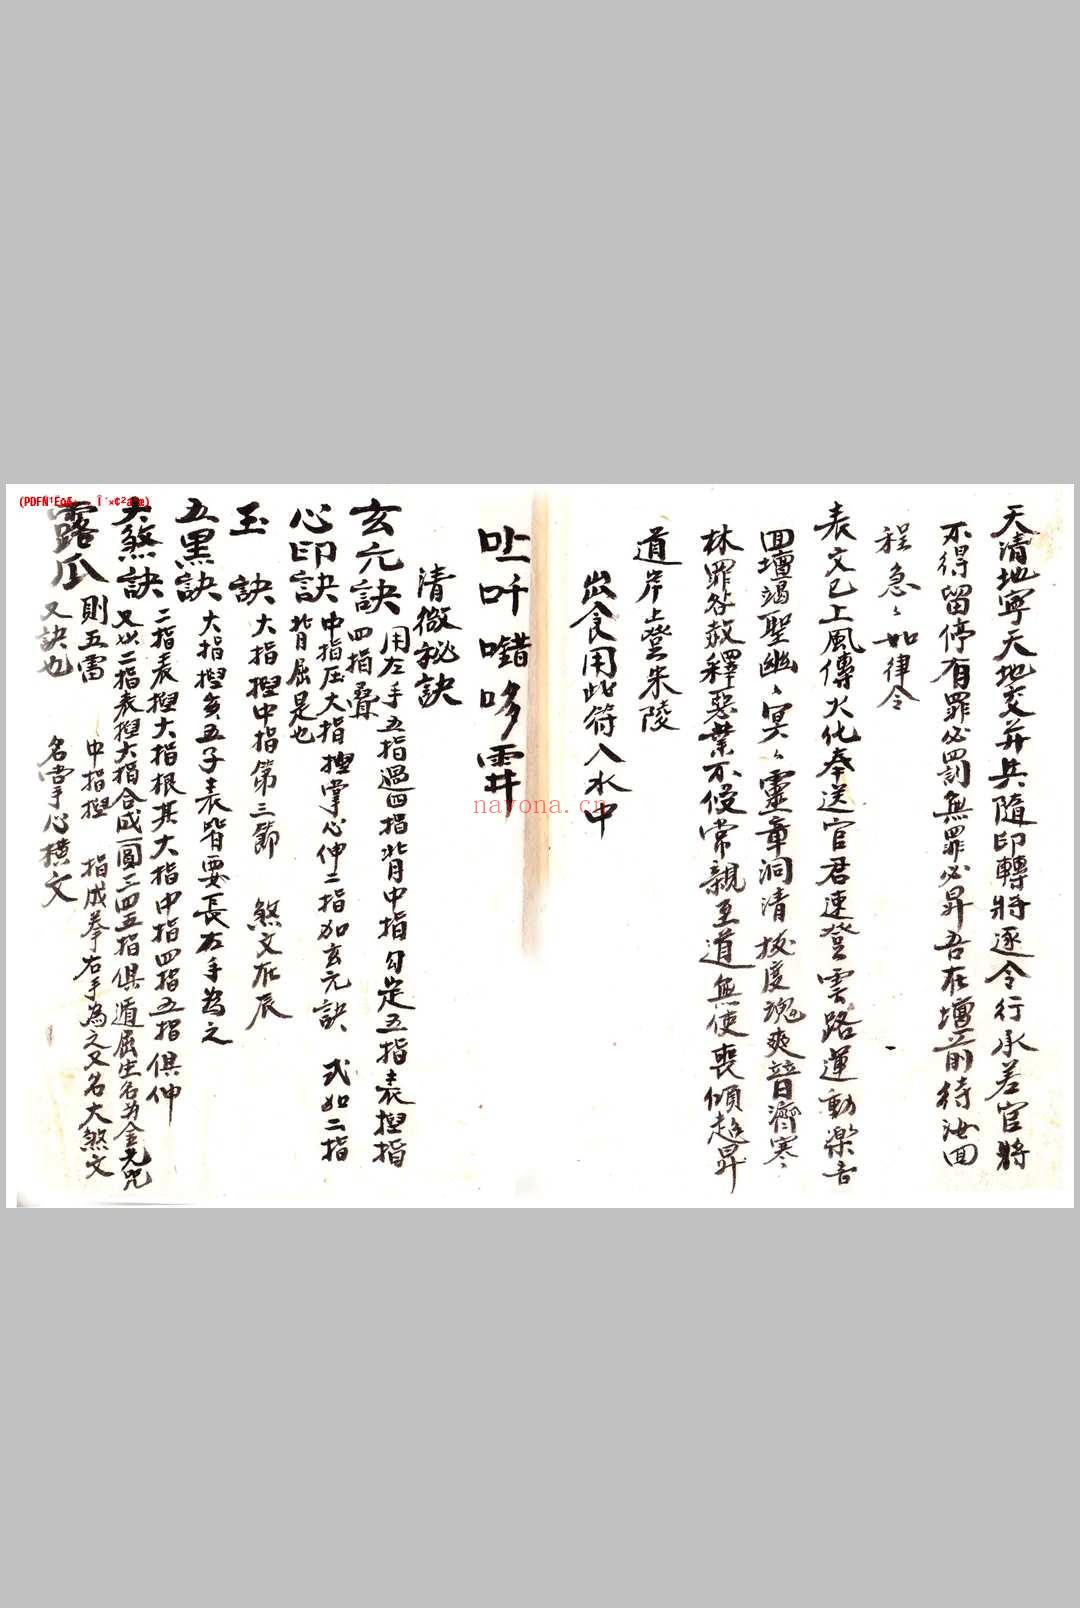 天清地寧天地交并兵隨印轉將逐令行承差官將
不得留停有罪必罰無罪必昇吾在壇前待汝回
程急々如律令
表文已上風傳火化奉送官君速登雲路運動樂音
回壇謁聖幽々冥々靈章洞清拔度魂爽普濟寒
林罪咎赦釋惡業不侵常親至道無使喪傾超昇
道岸上登朱陵
出食用此符入水中
吽 哆霹
清微秘訣
玄元訣 用左手五指過四指背中指勾定五指表捏指
四指疊
心印訣 中指压大指捏掌心伸二指如玄元訣 式如二指
背屈是也
玉訣 大指捏中指第三節 煞文在辰
五黑訣 大指捏亥五子表皆要長右手為之
大煞訣 二指表捏大指根其大指中指四指五指俱伸
又以二指表捏大指合成圓三四五指俱遁屈生名為金光咒
露瓜 則五雷 中指捏 指成拳右手為之又名大煞文
又訣也 名雷手心橫文
nayona.cn